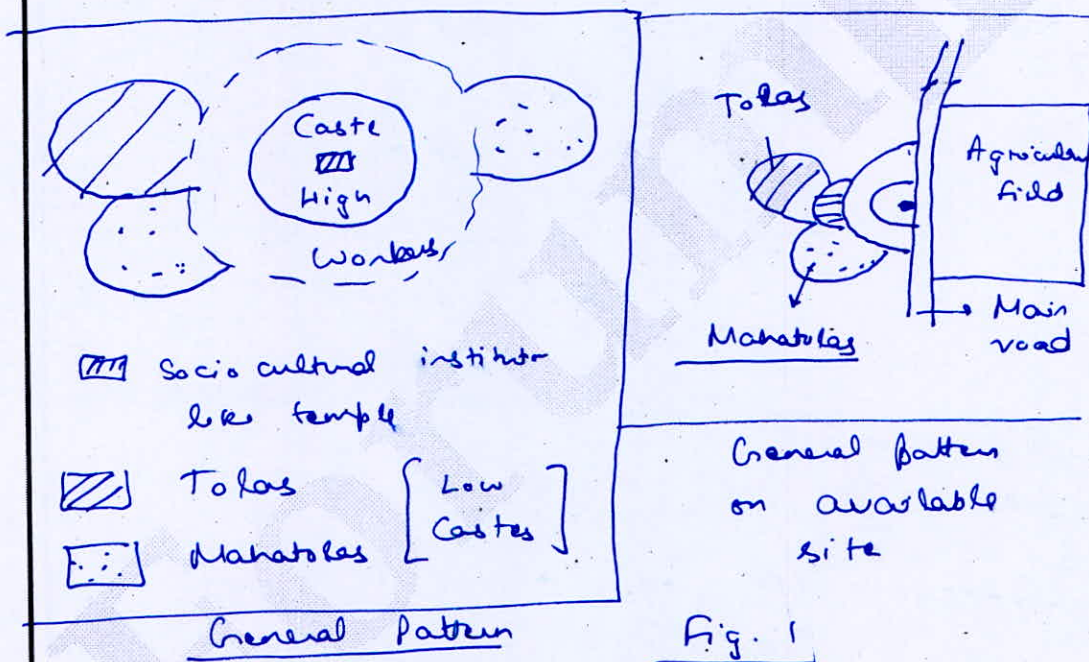 Caste
High
Workers
Socio cultural institution
like temple
Tolas
Mahatolas
[Low
Castes]
General Pattern
Tolas
Agricultural
field
Mahatolas
Main
road
General pattern
on available
site
Fig. 1